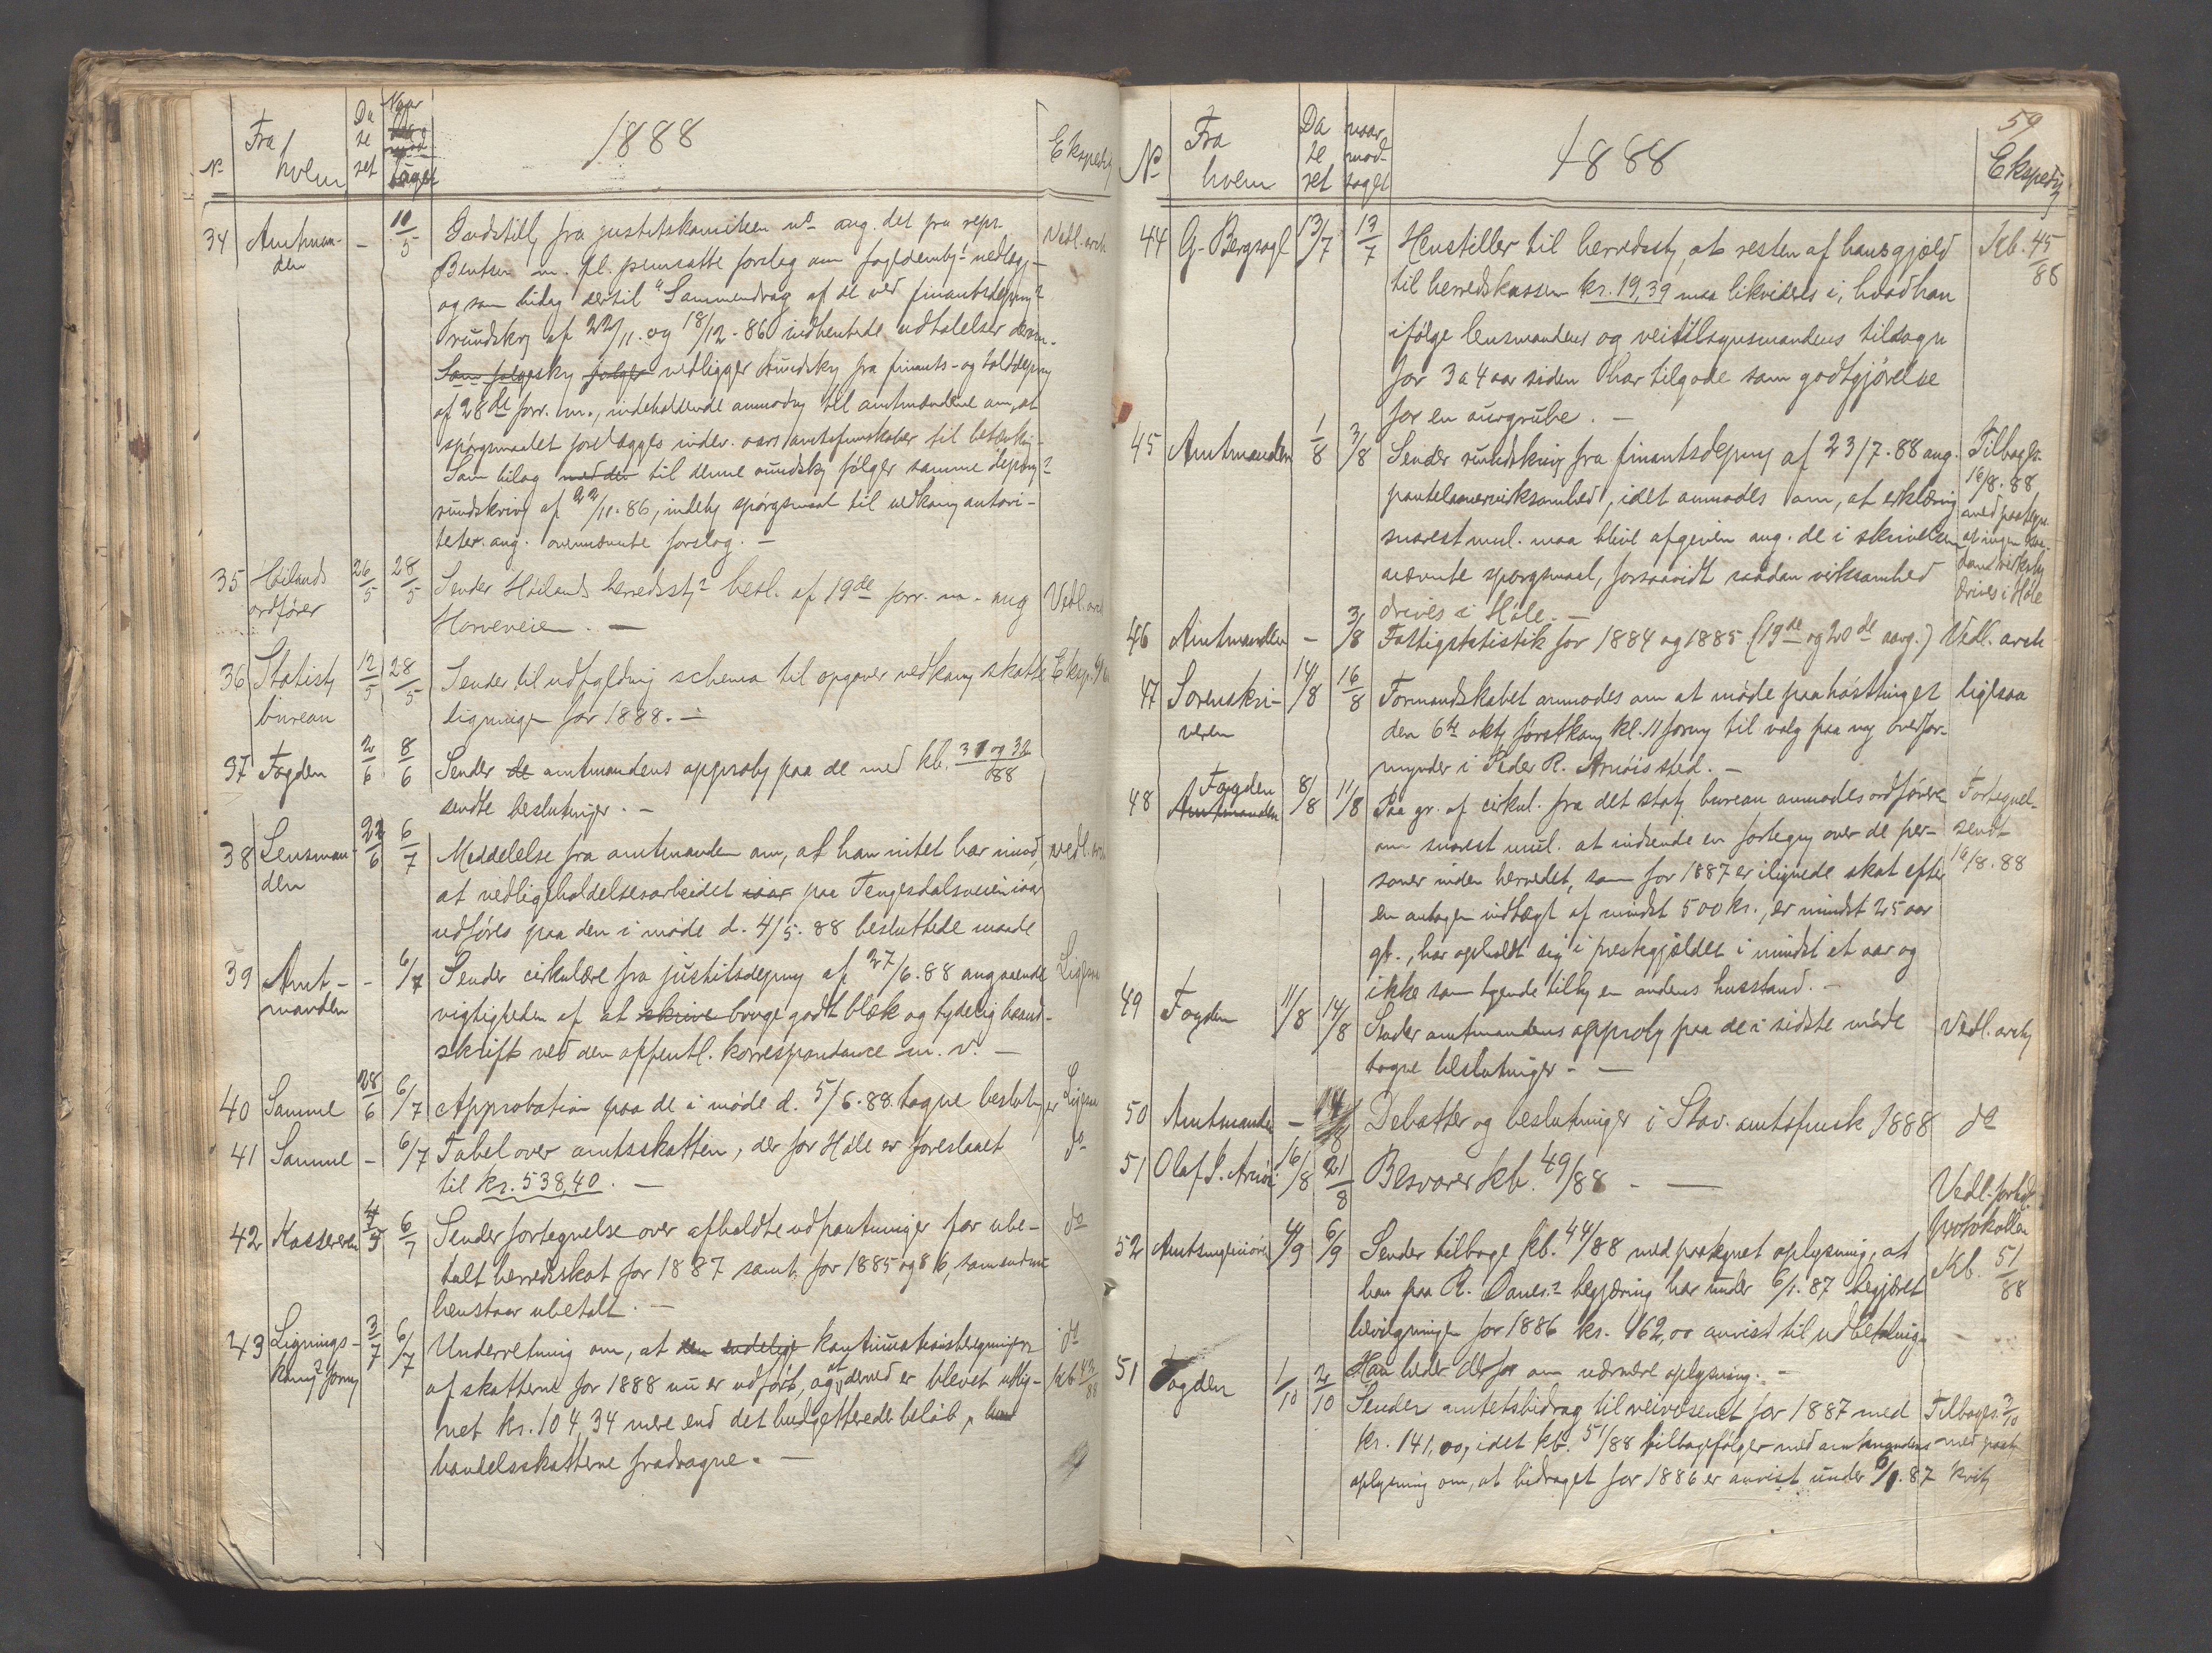 1888
No
Fra hvem
Da te ret
Naar mod taget
Ekspedit
34 Amtmanden – 10/5 Indstill. fra justitskomiteen ang. det fra repr.
Bentsen m. fl. fremsatte forslag om fogedemb. nedlæg-
og som bilag dertil "Sammendrag af de ved finantsdepmt
rundskr. af 22/11 og 18/12-86 indhentede udtalelser derom.
vedligger rundskr. fra finants- og tolddepmt
af 28de forr. m., indeholdende anmodng til amtmændene om, at
spørgsmaalet forelægges indev. aars amtsformskaber til betænkn-
Som bilag med den til denne rundskr. følger samme depmt
rundskriv af 22/11-86, indeh. spørgsmaal til vedkom. autori-
teter ang. ovennævnte forslag. –
Vedl. arch
35 Høilands ordfører 26/5 28/5 Sender Høilands herredsst. besl. af 19de forr. m. ang
Horveveien. – Vedl. arch
36 Statist. bureau 12/5 28/5 Sender til udfyldning schema til opgaver vedkom. skatte
ligningen for 1888. – Eksp.
37 Fogden 2/6 8/6 Sender de amtmandens approb. paa de med kb. 31 og 32/88
sendte beslutninger. –
38 Lensmanden 22/6 6/7 Meddelelse fra amtmanden om, at han intet har imod
at vedligeholdelsesarbeidet iaar paa Tengesdalsveien iaar
udføres paa den i møde d. 4/5. 88 besluttede maade
Vedl. arch
39 Amtmanden - 6/7 Sender cirkulære fra justitsdepmt af 27/6. 88 angaaende
vigtigheden af at skrive bruge godt blæk og tydelig haand-
skrift ved den offentl. korrespondance m. v. –
Ligesaa
40 Samme 28/6 6/7 Approbation paa de i møde d. 5/6. 88. tagne beslutninger Ligesaa
41 Samme – 6/7 Tabel over amtsskatten, der for Høle er foreslaaet
til kr. 538,40. – do
42 Kassereren 4/5 6/7 Sender fortegnelse over afholdte udpantninger for ube-
talt herredsskat for 1887 samt for 1885 og 86, som endnu
henstaar ubetalt. – do
43 Lignings- kom. form 3/7 6/7 Underretning om, at den endelige kontinuationsberegningen
af skatterne for 1888 nu er udført, og at derved er blevet udlig-
net kr. 104,34 mere end det budgetterede beløb,
handelsskatterne fradragne. –
do kb 43/88
59
1888
No
Fra hvem
Da te ret
naar mod- taget
Ekspedit
44 G. Bergsagl 13/7 13/7 Henstiller til herredsst., at resten af hans gjæld
til herredskassen kr. 19,39 maa likvideres i, hvad han
ifølge lensmandens og veitilsynsmandens tilsagn
for 3 a 4 aar siden har tilgode som godtgjørelse
for en aurgrube. –
Kb. 45/88
45 Amtmanden 1/8 3/8 Sender rundskriv fra finantsdepmt af 23/7. 88 ang.
pantelaanervirksomhed, idet anmodes om, at erklæring
snarest mul. maa blive afgiven ang. de i skrivelsen
nævnte spørgsmaal, forsaavidt saadan virksomhed
drives i Høle. –
Tilbages. 16/8. 88 med paategn. at ingen saadan virksomh. drives i Høle
46 Amtmanden – 3/8 Fattigstatistik for 1884 og 1885 (19de og 20de aarg.) Vedl. arch
47 Sorenskriveren 14/8 16/8 Formandskabet anmodes om at møde paa høsttinget
den 6te okt. førstkom. kl. 11 form. til valg paa ny overfor-
mynder i Peder R. Arnøis sted. –
ligesaa
48 Fogden Amtmanden 8/8 11/8 Paa gr. af cirkul. fra det stat. bureau anmodes ordføreren
om snarest mul. at indsende en fortegn. over de per-
soner inden herredet, som for 1887 er ilignede skat efter
en antagen indtægt af mindst 500 kr., er mindst 25 aar
gl., har opholdt sig i prestegjældet i mindst et aar og
ikke som tjende tilh. en andens husstand. –
Fortegnel. sendt 16/8. 88
49 Fogden 11/8 14/8 Sender amtmandens approb. paa de i sidste møde
tagne beslutninger – – Vedl. arch
50 Amtmanden – 14/8 Debatter og beslutninger i Stav. amtsformsk 1888 do
51 Olaf P. Arnøi 16/8 21/8 Besvarer kb. 49/88 – – Vedl. forlig. protokollen
52 Amtsingeniøren 4/9 6/9 Sender tilbage kb. 44/88 med paategnet oplysning, at
han paa R. begjæring har under 6/1. 87 begjæret
bevilgningen for 1886 kr. 162,00 anvist til udbetaling.
Han beder derfor om nærmere oplysning. –
Kb. 51/88
51 Fogden 1/10 2/10 Sender amtetsbidrag til veivæsenet for 1887 med
kr. 141,00, idet kb. 51/88 tilbagefølger med amtmandens
oplysning om, at bidraget for 1886 er anvist under 6/1. 87
Tilbages. 3/10 med paat. kvit.